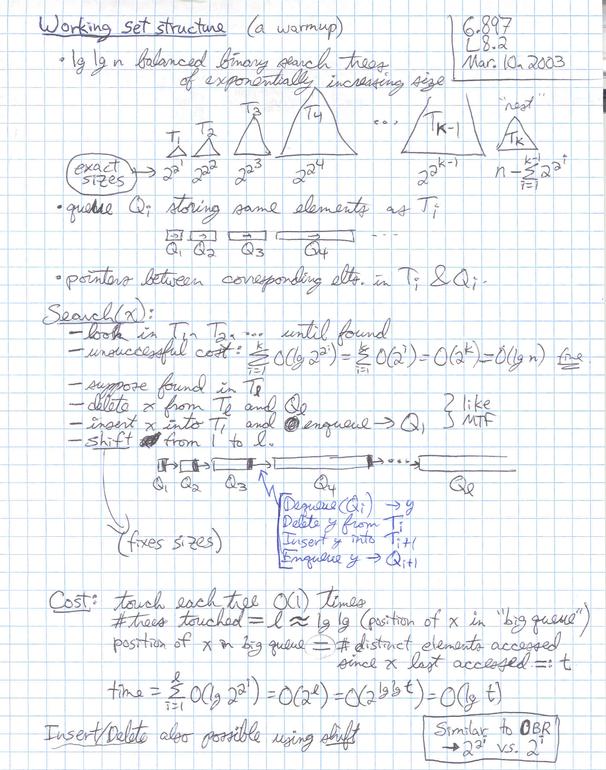 Working set structure (a warmup)
6.897
L8.2
Mar. 10, 2003
• lg lg n balanced binary search trees
of exponentially increasing size
T₁ T₂ T₃ T₄ ... Tₖ₋₁ "rest" Tₖ
exact sizes → 2^2^1 2^2^2 2^2^3 2^2^4 2^2^(k-1) n - Σ_{i=1}^{k-1} 2^2^i
• queue Qᵢ storing same elements as Tᵢ
Q₁ Q₂ Q₃ Q₄ ...
• pointers between corresponding elts. in Tᵢ & Qᵢ.
Search(x):
– look in T₁, T₂, ... until found
– unsuccessful cost: Σ_{i=1}^{k} O(lg 2^2^i) = Σ_{i=1}^{k} O(2^i) = O(2^k) = O(lg n) fine
– suppose found in Tₗ
– delete x from Tₗ and Qₗ
– insert x into T₁ and enqueue → Q₁ } like MTF
– shift from 1 to l.
Q₁ Q₂ Q₃ Q₄ ... Qₗ
(fixes sizes)
Dequeue(Qᵢ) → y
Delete y from Tᵢ
Insert y into Tᵢ₊₁
Enqueue y → Qᵢ₊₁
Cost: touch each tree O(1) times
# trees touched = l ≈ lg lg (position of x in "big queue")
position of x in big queue = # distinct elements accessed
since x last accessed =: t
time = Σ_{i=1}^{l} O(lg 2^2^i) = O(2^l) = O(2^lg lg t) = O(lg t)
Insert/Delete also possible using shift
Similar to OBR
→ 2^2^i vs. 2^i